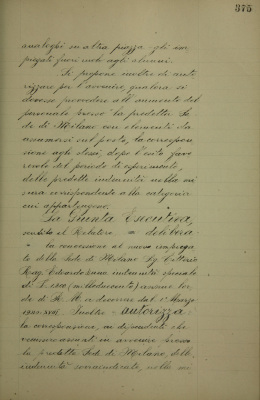 375
analoghi su altra piazza gli im
piegati fuori ruolo agli alunni.
Si propone inoltre di auto
rizzare per l'avvenire, qualora si
dovesse provvedere all'aumento del
personale presso la predetta Se
de di Milano con elementi da
assumersi sul posto, la correspon
sione agli stessi, dopo l'esito favo
revole del periodo di esperimento,
delle predette indennità nella mi
sura corrispondente alla categoria
cui appartengono.
La Giunta Esecutiva,
sentito il Relatore, = delibera =
la concessione al nuovo impiega
to della Sede di Milano Sig. Vittorio
Rag. Edoardo una indennità speciale
di L. 1200 (milleduecento) annue lor
de di R. M. a decorrere dal 1° Marzo
Inoltre autorizza
la corresponsione, ai dipendenti che
venissero assunti in avvenire presso
la predetta Sede di Milano, delle
indennità consuetudinarie, nella mi